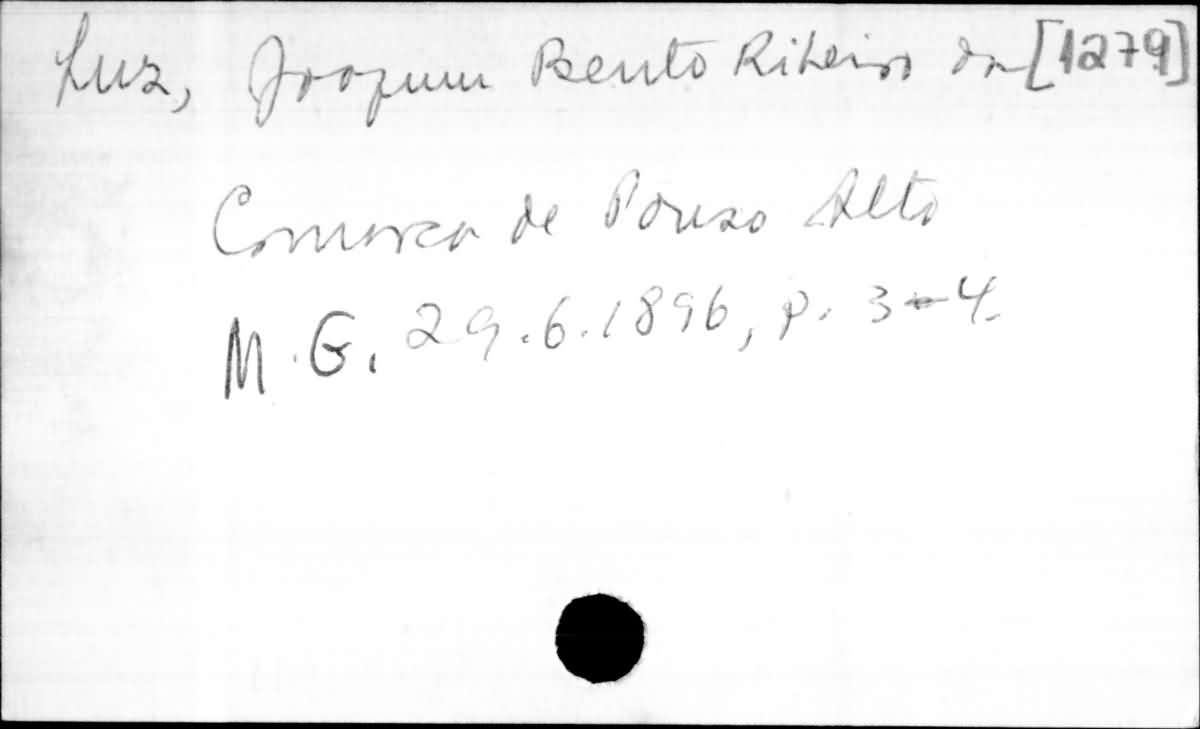 Luz, Joaquim Bento Ribeiro da [1279]
Comarca de Pouso Alto
M.G. 29.6.1896, p. 3-4.